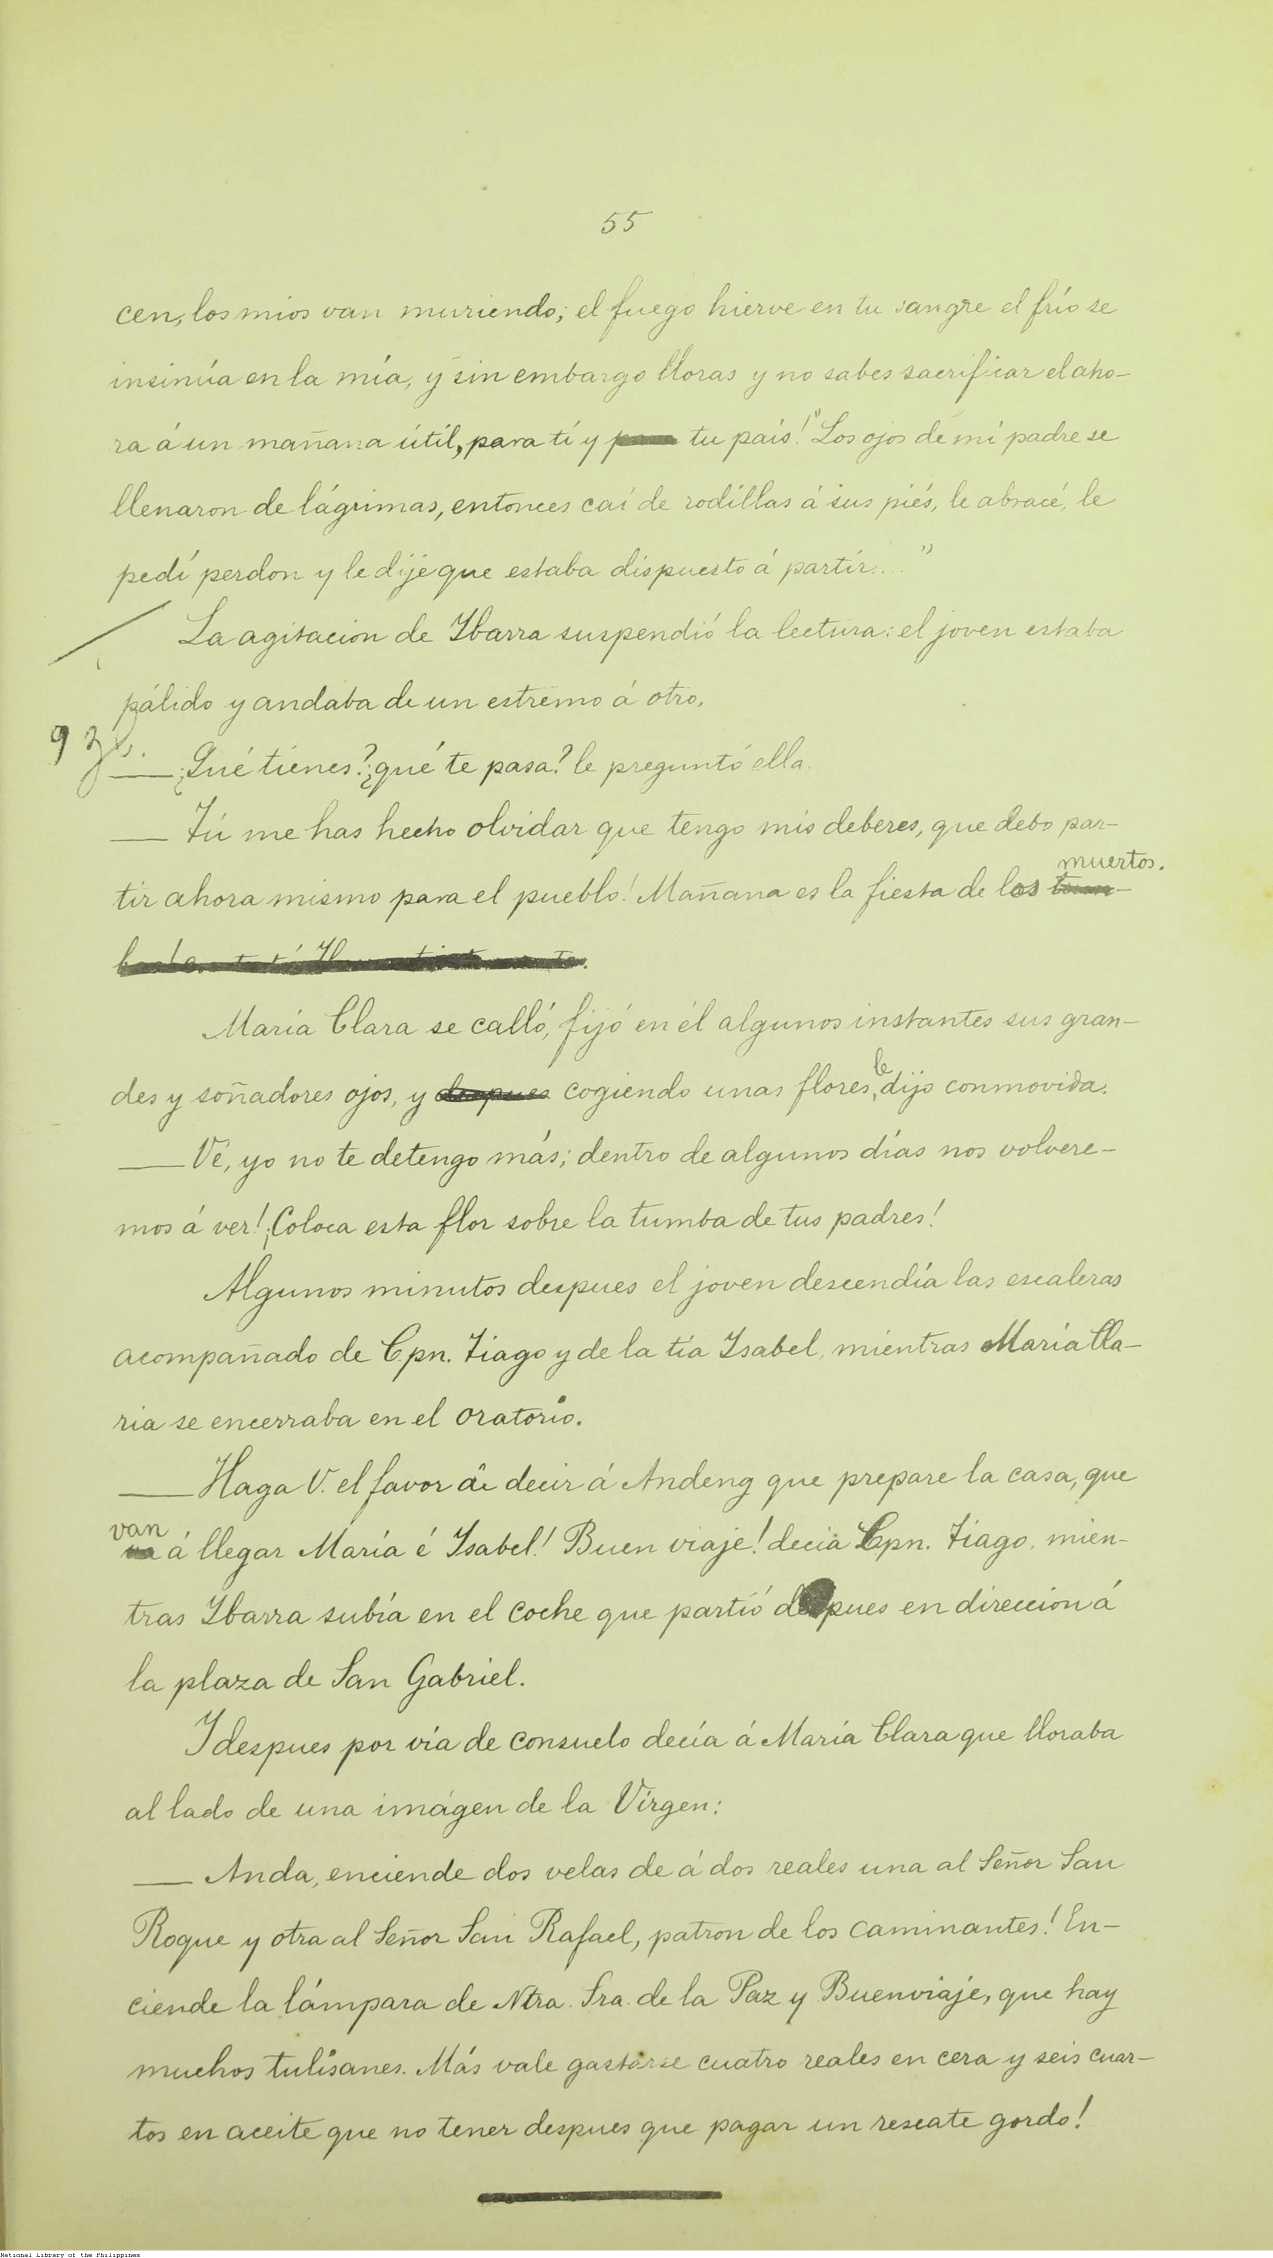 55
cen, los mios van muriendo; el fuego hierve en tu sangre el frío se
insinúa en la mía, y sin embargo lloras y no sabes sacrificar el aho-
ra á un mañana útil, para tí y para tu país!" Los ojos de mi padre se
llenaron de lágrimas, entonces caí de rodillas á sus piés, le abracé, le
pedí perdon y le dije que estaba dispuesto á partir...."
La agitacion de Ybarra suspendió la lectura: el joven estaba
pálido y andaba de un estremo á otro.
— ¿Qué tienes? ¿qué te pasa? le preguntó ella.
— Tú me has hecho olvidar que tengo mis deberes, que debo par-
muertos.
tir ahora mismo para el pueblo! Mañana es la fiesta de los
María Clara se calló, fijó en él algunos instantes sus gran-
le
des y soñadores ojos, y despues cogiendo unas flores, dijo conmovida.
— Vé, yo no te detengo más; dentro de algunos días nos volvere-
mos á ver! ¡Coloca esta flor sobre la tumba de tus padres!
Algunos minutos despues el joven descendía las escaleras
acompañado de Cpn. Tiago y de la tía Ysabel, mientras María Cla-
ria se encerraba en el oratorio.
— Haga V. el favor de decir á Andeng que prepare la casa, que
van
va á llegar María é Ysabel! Buen viaje! decia Cpn. Tiago, mien-
tras Ybarra subía en el coche que partió despues en direccion á
la plaza de San Gabriel.
Y despues por vía de consuelo decía á María Clara que lloraba
al lado de una imágen de la Vírgen:
— Anda, enciende dos velas de á dos reales una al Señor San
Roque y otra al Señor San Rafael, patron de los caminantes! En-
ciende la lámpara de Ntra. Sra. de la Paz y Buenviaje, que hay
muchos tulisanes. Más vale gastarse cuatro reales en cera y seis cuar-
tos en aceite que no tener despues que pagar un rescate gordo!
National Library of the Philippines